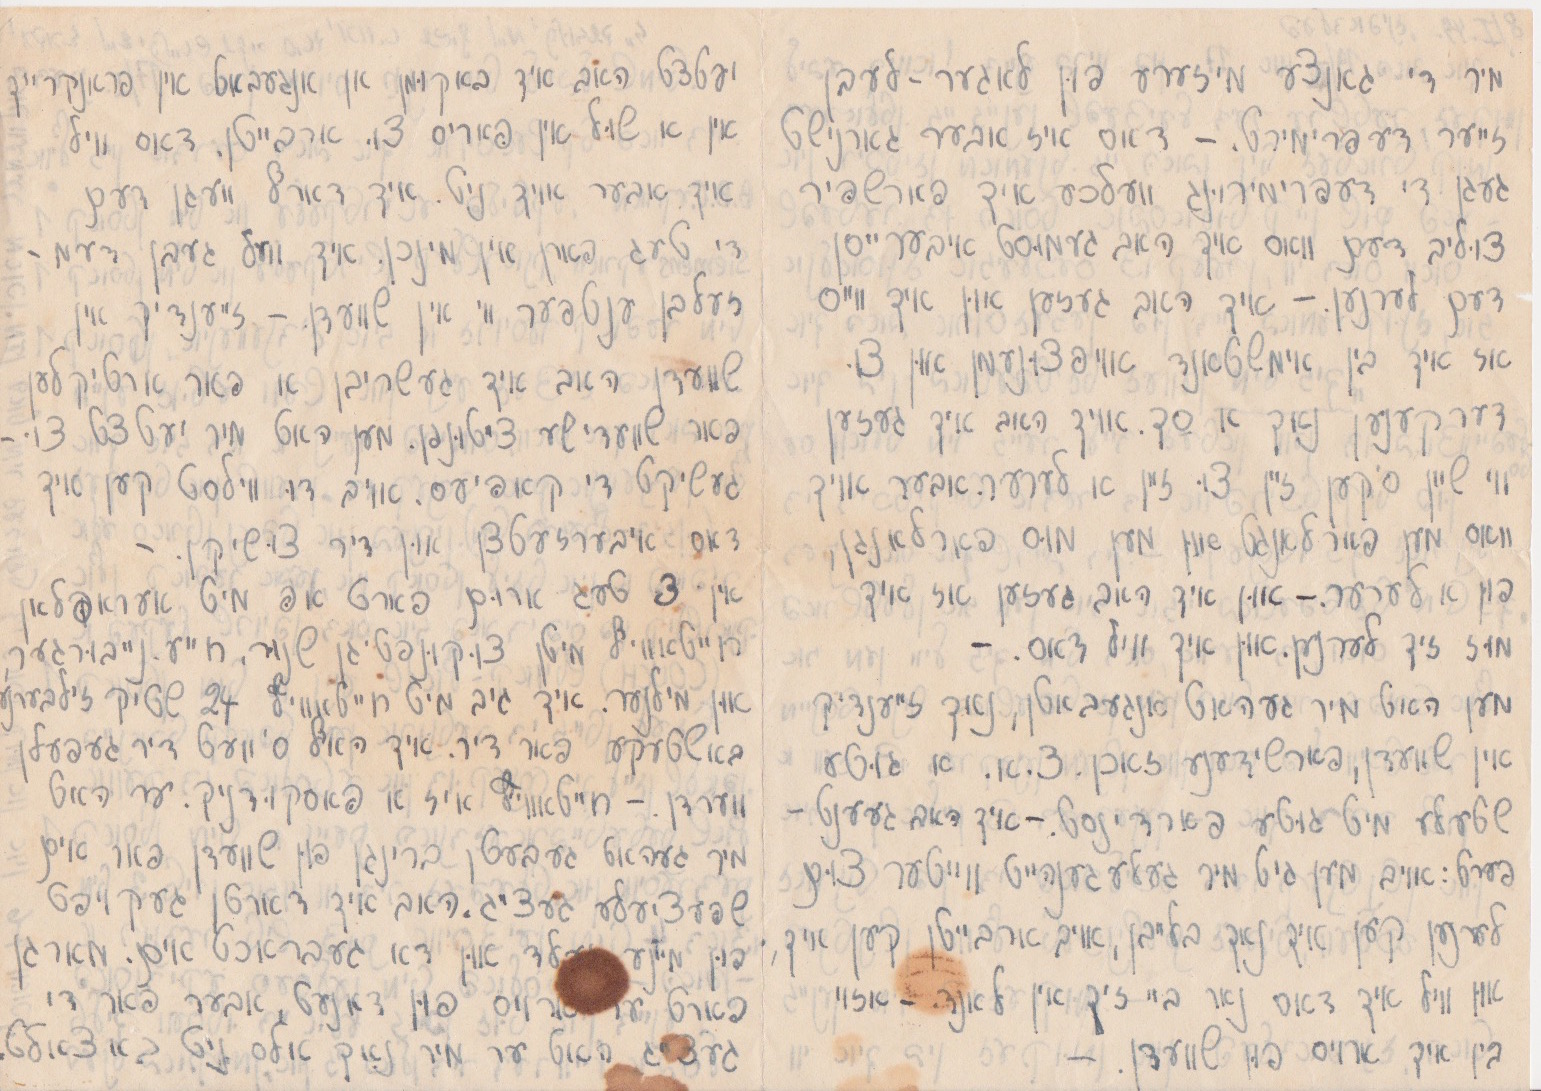 מיר די גאנצע מיזערע פון לאגער-לעבן
זייער דעפרימירט. – דאס איז אבער גארנישט
געגן די דעפרימירונג וועלכע איך פארשפיר
צוליב דעם וואס איך האב געמוסט איבערייסן
דעם לערנען. – איך האב געזען און איך ווייס
אז איך בין אימשטאנד אויפצונעמן און צו
דערקענען נאך א סך. אויך האב איך געזען
ווי שיין ס'קען זיין צו זיין א לערער. אבער אויך
וואס מען פארלאנגט און מען מוס פארלאנגן,
פון א לערער. – און איך האב געזען אז איך
מוז זיך לערנען. און איך וויל דאס. –
מען האט מיר געהאט אנגעבאטן, נאך זייענדיק
אין שוועדן, פארשידענע זאכן. צ.א. א גוטע
שטעלע מיט גוטע פארדינסט. – איך האב געענט-
פערט: אויב מען גיט מיר געלעגענהייט ווייטער צום
לערנען קען איך נאך בלייבן, אויב ארבייטן קיען איך,
און וויל איך דאס נאר ביי זיך אין לאנד. – אזוי
בין איך ארויס פון שוועדן. –
יעטצט האב איך באקומן אן אנגעבאט אין פראנקרייך
אין א שול אין פאריס צו ארבייטן. דאס וויל
איך אבער אויך ניט. איך דארף וועגן דעם
די טעג פארן אין מינכן. איך וועל געבן דעמ-
זעלבן ענטפער ווי אין שוועדן. – זייענדיק אין
שוועדן האב איך געשריבן א פאר ארטיקלען
פאר שוועדישע צייטונגן. מען האט מיר יעטצט צו-
געשיקט די קאפיעס. אויב דו ווילסט קען איך
דאס איבערזעטצן און דיר צושיקן. –
אין 3 טעג ארום פארט אפ מיט אעראפלאן
חייטאוויץ מיטן צוקונפטיגן שנור, חייע נייבורגער,
און מילנער. איך גיב מיט חייטאוויץ 24 שטיק זילבערנע
באשטעקע פאר דיר. איך האף ס'וועט דיר געפעלן
ווערדן. – חייטאוויץ איז א פאסקודניק. ער האט
מיר געהאט געבעטן ברינגן פון שוועדן פאר אים
שפעציעלע געצייג. האב איך דארטן געקויפט
פון מיינע געלד און דא געבראכט אים. מארגן
פארט ער ארויס פון דאנעט, אבער פאר די
געצייג האט ער מיר נאך אלס ניט באצאלט.